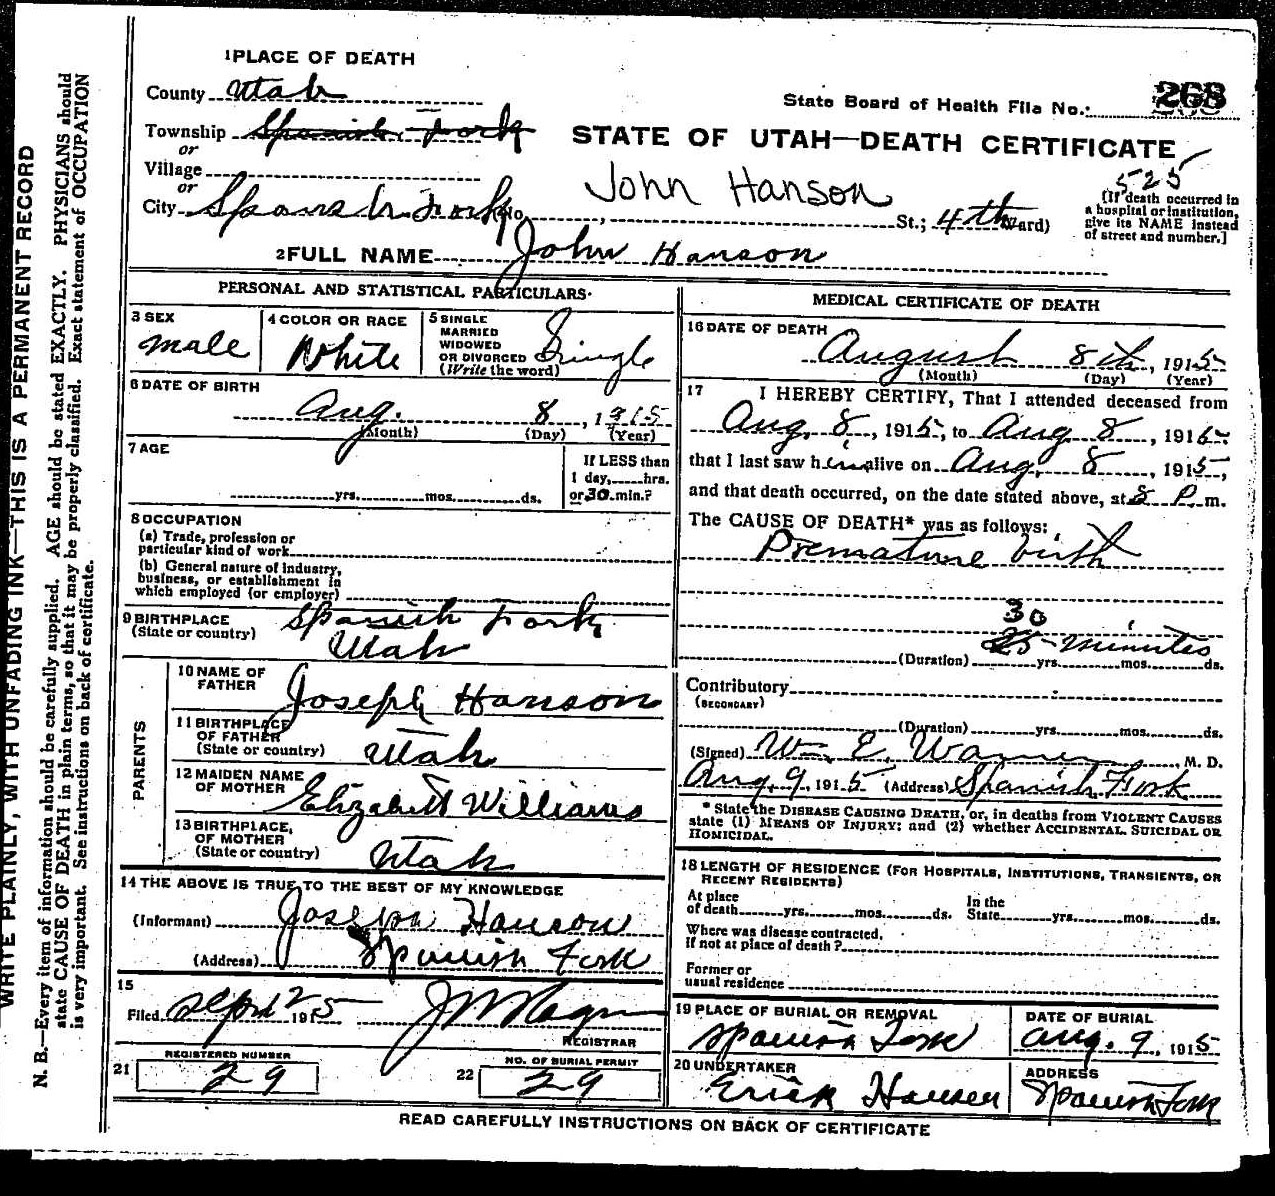 WRITE PLAINLY, WITH UNFADING INK—THIS IS A PERMANENT RECORD
N. B.—Every item of information should be carefully supplied. AGE should be stated EXACTLY. PHYSICIANS should
state CAUSE OF DEATH in plain terms, so that it may be properly classified. Exact statement of OCCUPATION
is very important. See instructions on back of certificate.
1 PLACE OF DEATH
County Utah
State Board of Health File No.: 268
Township Spanish Fork
or
STATE OF UTAH—DEATH CERTIFICATE
Village
or
John Hanson
525
City Spanish Fork No. , St.; 4th Ward)
[If death occurred in
a hospital or institution,
give its NAME instead
of street and number.]
2 FULL NAME John Hanson
PERSONAL AND STATISTICAL PARTICULARS.
3 SEX
male
4 COLOR OR RACE
White
5 SINGLE
MARRIED
WIDOWED
OR DIVORCED
(Write the word)
Single
6 DATE OF BIRTH
Aug. 8, 1915
(Month) (Day) (Year)
7 AGE
yrs. mos. ds.
If LESS than
1 day, hrs.
or 30 min.?
8 OCCUPATION
(a) Trade, profession or
particular kind of work
(b) General nature of industry,
business, or establishment in
which employed (or employer)
9 BIRTHPLACE
(State or country)
Spanish Fork,
Utah
PARENTS
10 NAME OF
FATHER
Joseph Hanson
11 BIRTHPLACE
OF FATHER
(State or country)
Utah
12 MAIDEN NAME
OF MOTHER
Elizabeth Williams
13 BIRTHPLACE,
OF MOTHER
(State or country)
Utah
14 THE ABOVE IS TRUE TO THE BEST OF MY KNOWLEDGE
(Informant) Joseph Hanson
(Address) Spanish Fork
15
Filed Sept 2 1915
REGISTRAR
21
REGISTERED NUMBER
29
22
NO. OF BURIAL PERMIT
29
MEDICAL CERTIFICATE OF DEATH
16 DATE OF DEATH
August 8th, 1915
(Month) (Day) (Year)
17 I HEREBY CERTIFY, That I attended deceased from
Aug. 8, 1915, to Aug 8, 1915
that I last saw him alive on Aug. 8, 1915,
and that death occurred, on the date stated above, at 8 P. m.
The CAUSE OF DEATH* was as follows:
Premature birth
30
25 minutes
(Duration) yrs. mos. ds.
Contributory
(SECONDARY)
(Duration) yrs. mos. ds.
(Signed) Wm. E. Warner, M. D.
Aug. 9, 1915 (Address) Spanish Fork
* State the DISEASE CAUSING DEATH, or, in deaths from VIOLENT CAUSES
state (1) MEANS OF INJURY; and (2) whether ACCIDENTAL, SUICIDAL OR
HOMICIDAL.
18 LENGTH OF RESIDENCE (FOR HOSPITALS, INSTITUTIONS, TRANSIENTS, OR
RECENT RESIDENTS)
At place
of death yrs. mos. ds.
In the
State yrs. mos. ds.
Where was disease contracted,
if not at place of death?
Former or
usual residence
19 PLACE OF BURIAL OR REMOVAL
Spanish Fork
DATE OF BURIAL
Aug. 9, 1915
20 UNDERTAKER
Erick Hansen
ADDRESS
Spanish Fork
READ CAREFULLY INSTRUCTIONS ON BACK OF CERTIFICATE